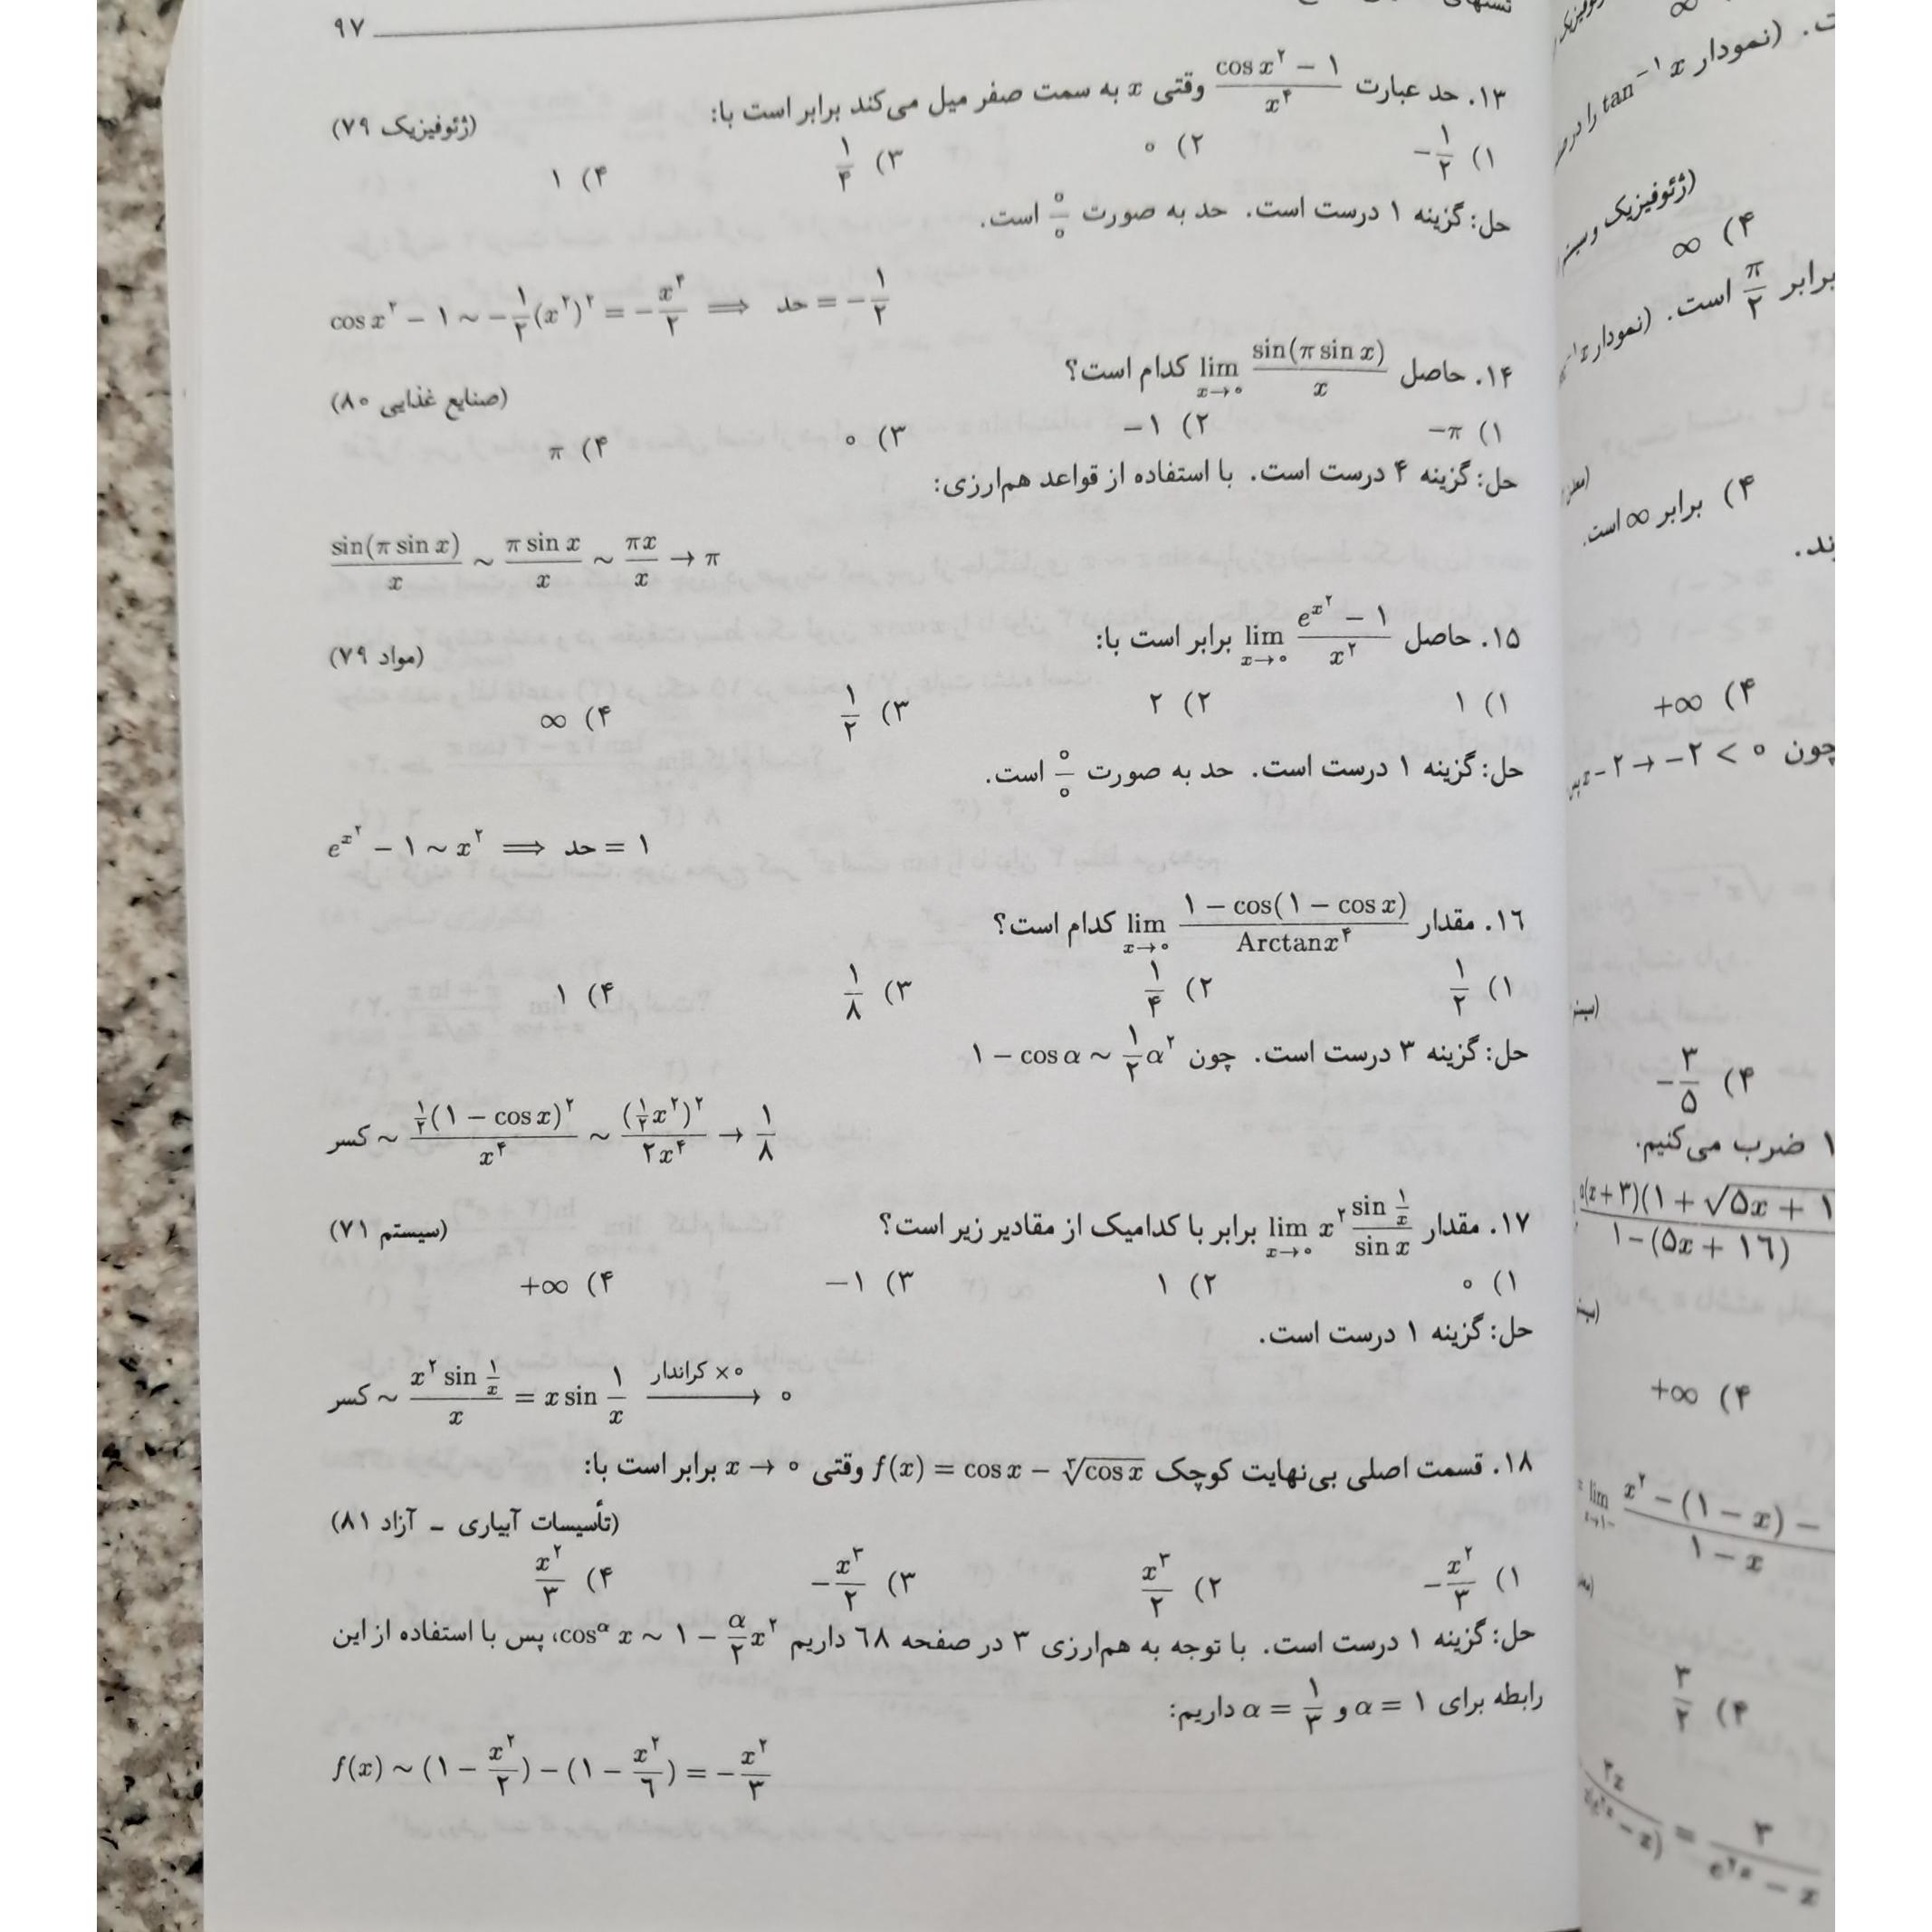 ۹۷
۱۳. حد عبارت (cos x^۲ − ۱)/x^۴ وقتی x به سمت صفر میل می‌کند برابر است با:
(ژئوفیزیک ۷۹)
۱) −۱/۲ ۲) ۰ ۳) ۱/۴ ۴) ۱
حل: گزینه ۱ درست است. حد به صورت ۰/۰ است.
cos x^۲ − ۱ ∼ −۱/۲(x^۲)^۲ = −x^۴/۲ ⟹ حد = −۱/۲
۱۴. حاصل lim x→۰ sin(π sin x)/x کدام است؟
(صنایع غذایی ۸۰)
۱) −π ۲) −۱ ۳) ۰ ۴) π
حل: گزینه ۴ درست است. با استفاده از قواعد هم‌ارزی:
sin(π sin x)/x ∼ π sin x/x ∼ πx/x → π
۱۵. حاصل lim x→۰ (e^x^۲ − ۱)/x^۲ برابر است با:
(مواد ۷۹)
۱) ۱ ۲) ۲ ۳) ۱/۲ ۴) ∞
حل: گزینه ۱ درست است. حد به صورت ۰/۰ است.
e^x^۲ − ۱ ∼ x^۲ ⟹ حد = ۱
۱۶. مقدار lim x→۰ (۱ − cos(۱ − cos x))/Arctanx^۴ کدام است؟
۱) ۱/۲ ۲) ۱/۴ ۳) ۱/۸ ۴) ۱
حل: گزینه ۳ درست است. چون ۱ − cos α ∼ ۱/۲ α^۲
کسر ∼ ۱/۲(۱ − cos x)^۲/x^۴ ∼ (۱/۲ x^۲)^۲/۲x^۴ → ۱/۸
۱۷. مقدار lim x→۰ x^۲ sin ۱/x / sin x برابر با کدامیک از مقادیر زیر است؟
(سیستم ۷۱)
۱) ۰ ۲) ۱ ۳) −۱ ۴) +∞
حل: گزینه ۱ درست است.
کسر ∼ x^۲ sin ۱/x / x = x sin ۱/x → ۰ (۰ × کراندار)
۱۸. قسمت اصلی بی‌نهایت کوچک f(x) = cos x − ∛cos x وقتی x → ۰ برابر است با:
(تأسیسات آبیاری ـ آزاد ۸۱)
۱) −x^۲/۳ ۲) x^۳/۲ ۳) −x^۳/۲ ۴) x^۲/۳
حل: گزینه ۱ درست است. با توجه به هم‌ارزی ۳ در صفحه ۶۸ داریم cos^α x ∼ ۱ − α/۲ x^۲، پس با استفاده از این
رابطه برای α = ۱ و α = ۱/۳ داریم:
f(x) ∼ (۱ − x^۲/۲) − (۱ − x^۲/۶) = −x^۲/۳
(نمودار tan^−۱ x را
(ژئوفیزیک و
۴) ∞
برابر π/۲ است. (نمودار
۴) برابر ∞ است.
۴) +∞
چون ۰ > ۲− → ۲−x
۴) −۳/۵
۱ ضرب می‌کنیم.
(x + ۳)(۱ + √۵x + ۱
۱ − (۵x + ۱۶)
۴) +∞
lim x^۲ − (۱ − x) −
۱ − x
۴) ۳/۲